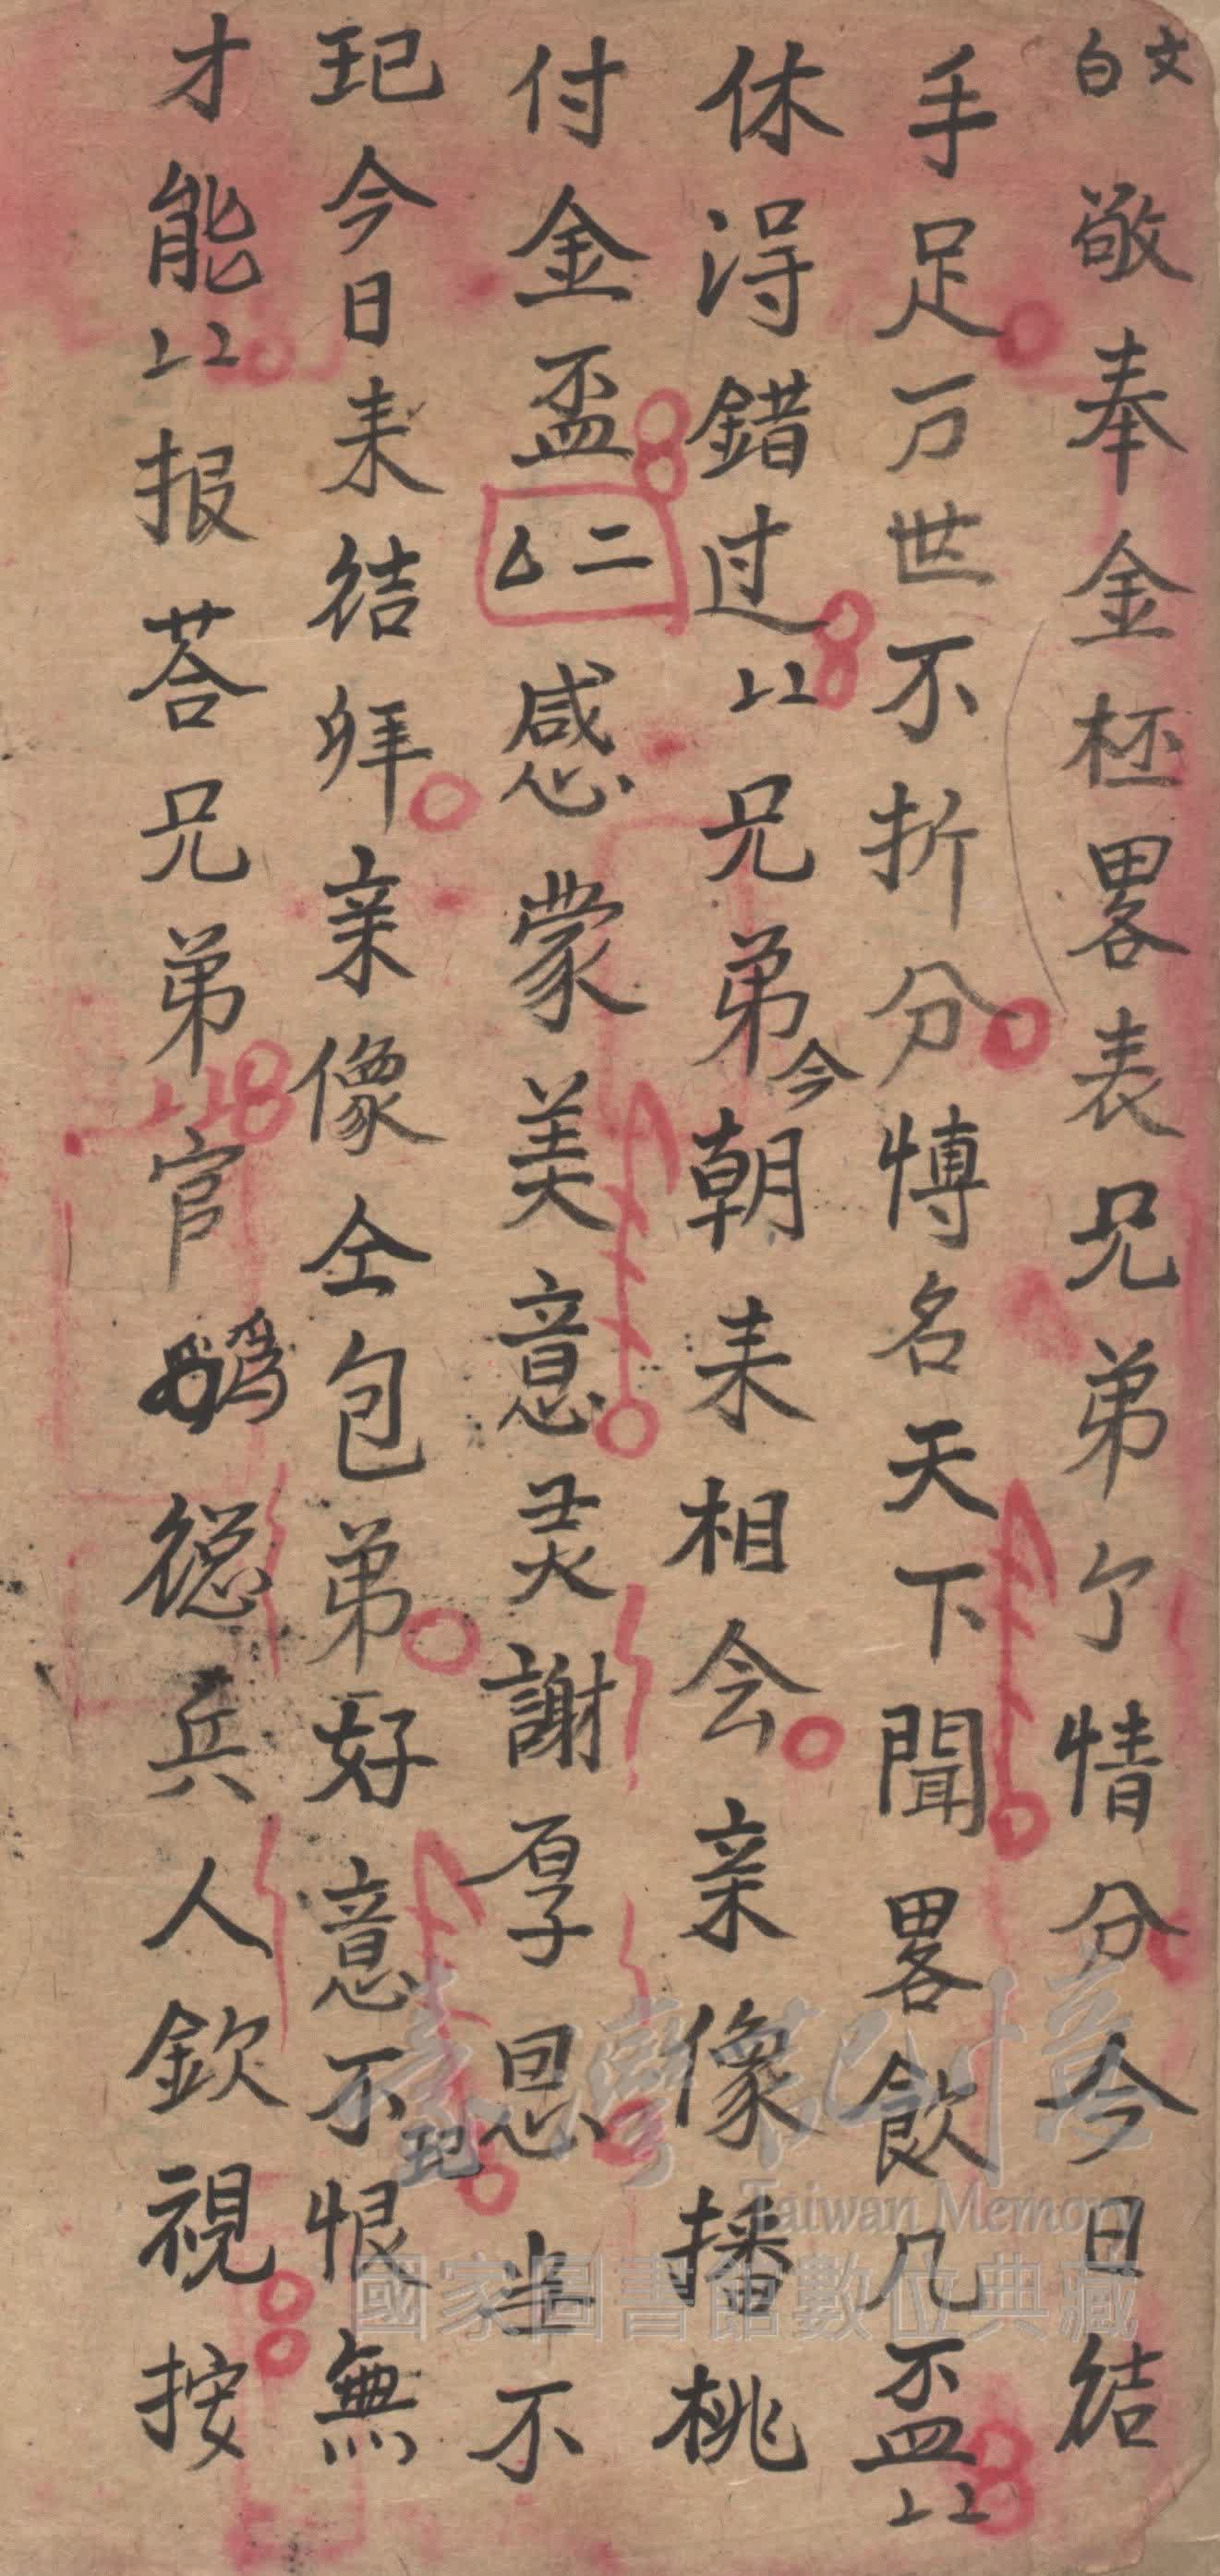 文白敬奉金杯畧表兄弟个情分今日结
手足万世不折分愽名天下聞畧飲几盃⺀
休淂錯过⺀兄弟今朝耒相会亲像播桃
付金盃二厶感蒙美意灵謝厚恩半不
玘今日耒结拜亲像仝包弟好意不玘恨無
才能⺀报荅兄弟官兵人欽視按
臺灣記憶
Taiwan Memory
國家圖書館數位典藏